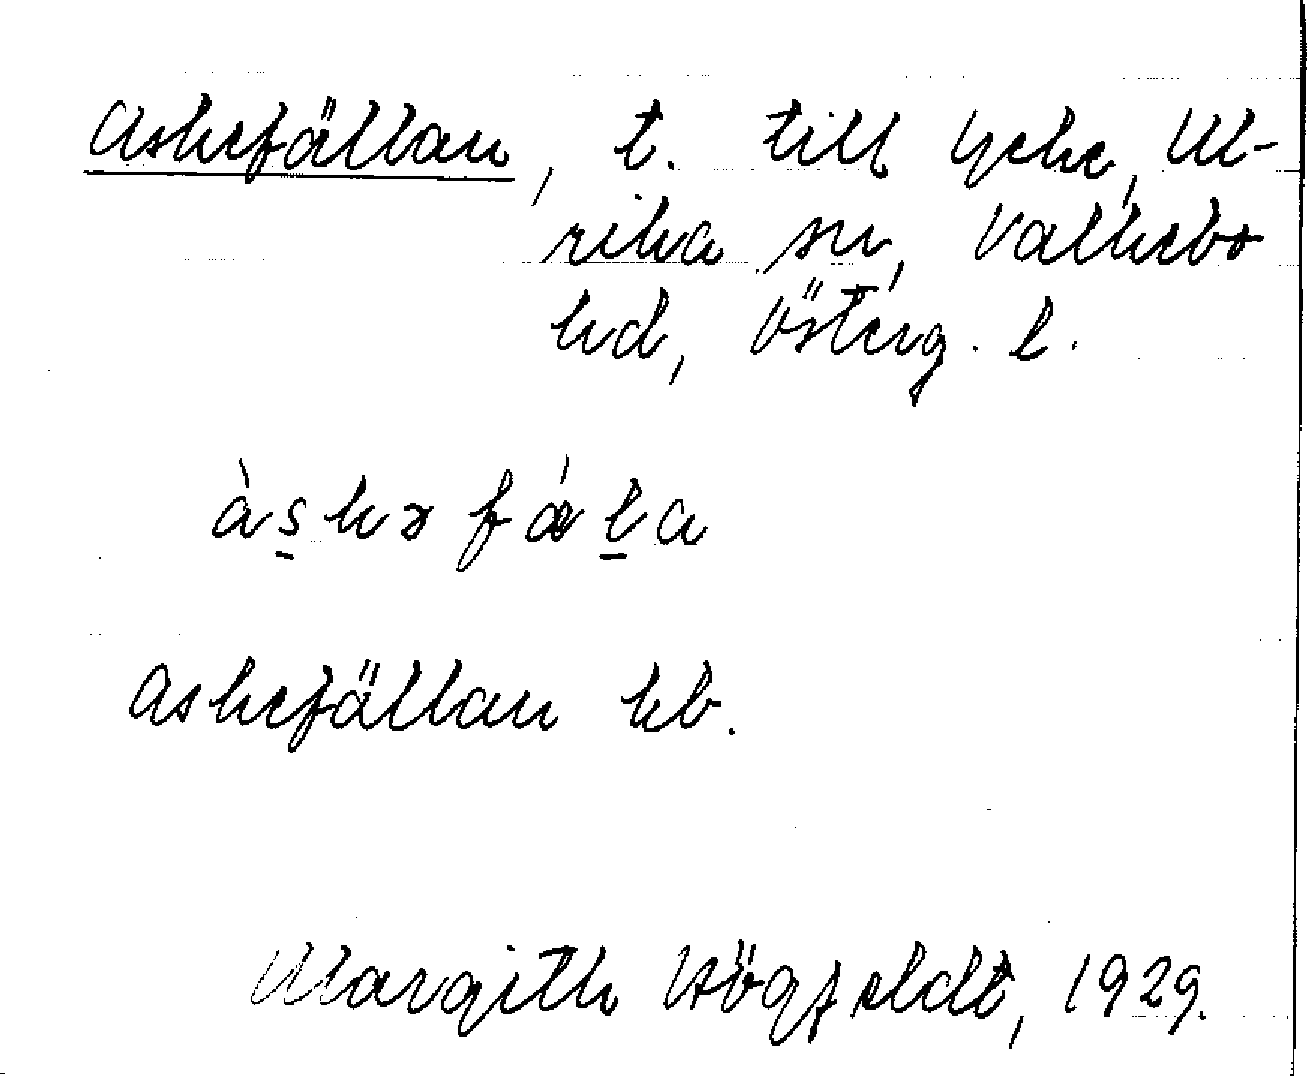 Askefällan, t. till Lycke, Ul-
rika sn, Valkebo
hd, Österg. l.
àskəfǽla
Askefällan kb.
Margith Högfeldt, 1929.